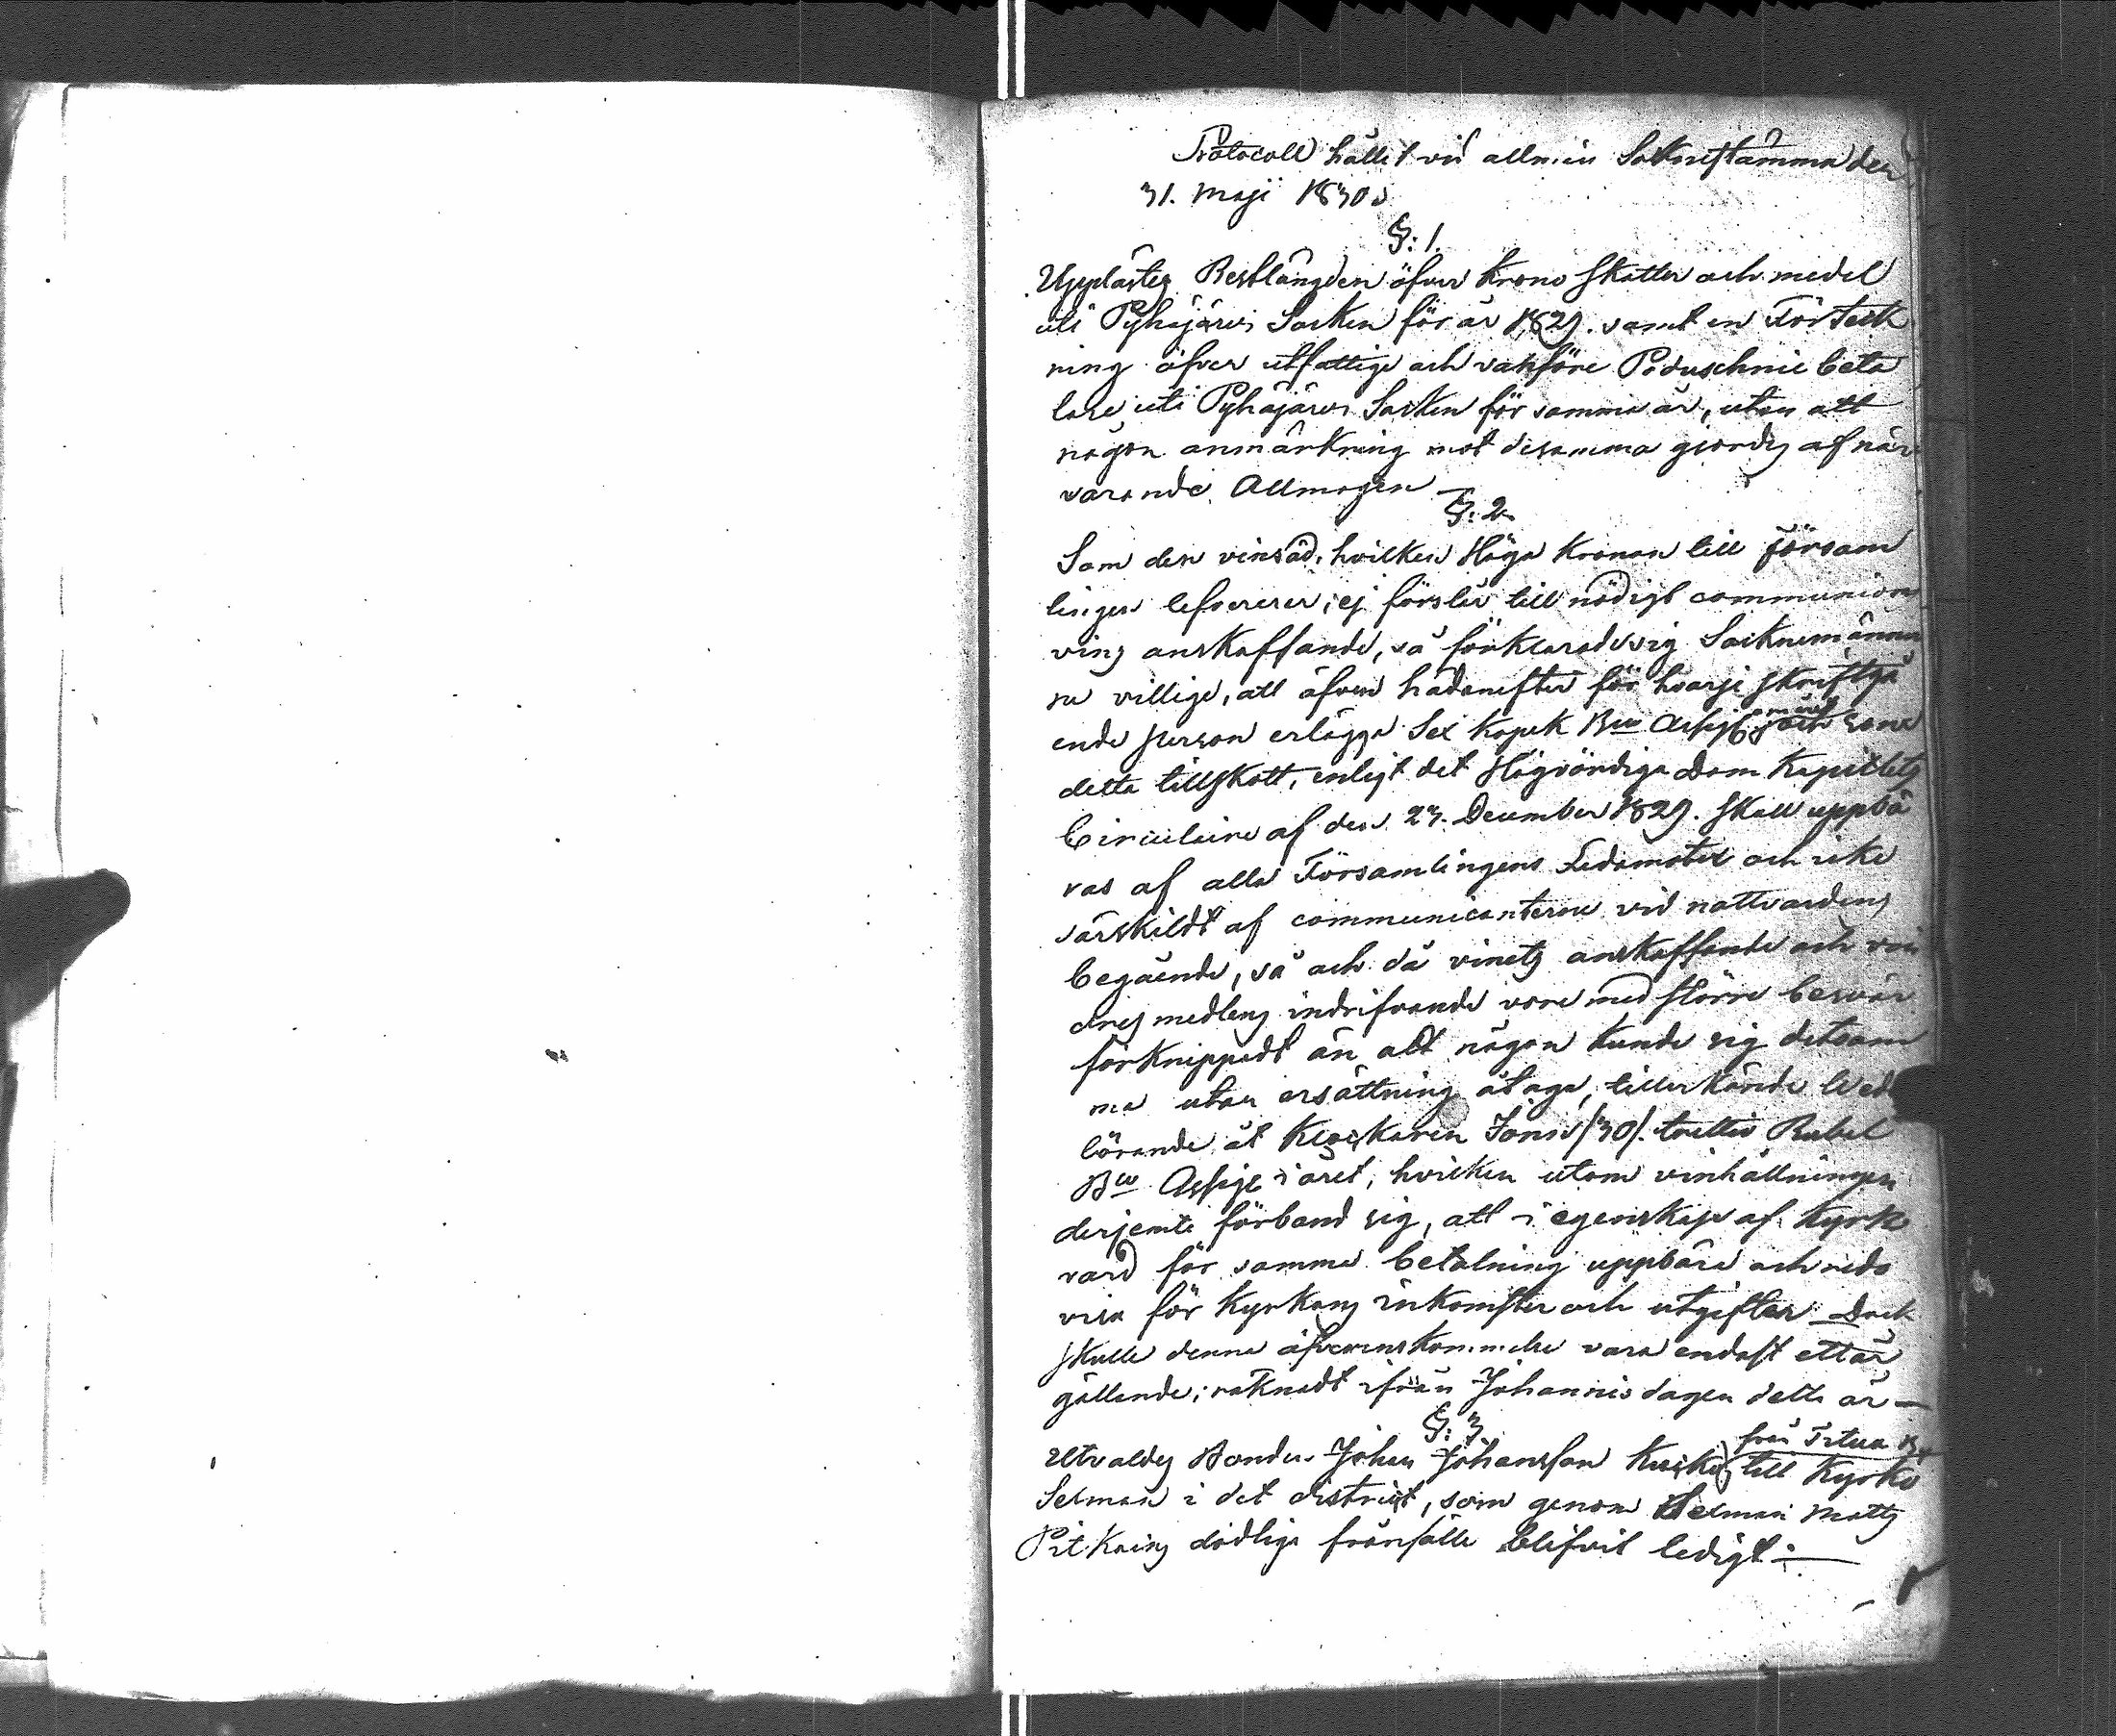 Protocoll hållit vid allmän Sockenstämma den
31. Maji 1830.
§: 1.
Upplästes Restlängden öfver Krono Skatter och medel
uti Pyhäjärvi Socken för år 1829. samt en Förteck
ning öfver utfattige och vanföre Poduschnie beta
lare uti Pyhäjärvi Socken för samma år, utan att
någon anmärkning mot desamma gjordes af när
varande Allmogen —
§: 2.
Som den vinsäd, hvilken Höga Kronan till Försam
lingen lefvererer, ej förslår till nödigt communion
vins anskaffande, så förklarade sig Socknemänne
ne villige, att äfven hädanefter för hvarje skriftgå
ende person erlägga Sex Kopek Bco Assign: och som
detta tillskott, enligt det Högvördiga Dom Kapitlets
Circulaire af den 23. December 1829. skall uppbä
ras af alla Församlingens Ledamöter och icke
särskildt af communicanterne vid nattvardens
begående, så och då vinets anskaffande och vin
dres medlens indrifvande vore med större besvär
förknippadt än att någon kunde sig detsam
ma utan ersättning åtaga, tillerkände Ved
börande åt Klockaren Jonse /30/. trettio Rubel
Bco Assige i året, hvilken utom vinhållningen
derjemte förband sig, att i egenskap af Kyrk
värd för samma betalning uppbära och redo
visa för Kyrkans inkomster och utgifter — Dock
skulle denna öfverenskommelse vara endast ett år
gällande; räknadt ifrån Johannis dagen detta år —
§: 3
från Tiitua By
Utvaldes Bonden Johan Johansson Kuisko till Kyrko
Sexman i det district, som genom Sexman Matts
Pitkäins dödliga frånfälle blifvit ledigt. —